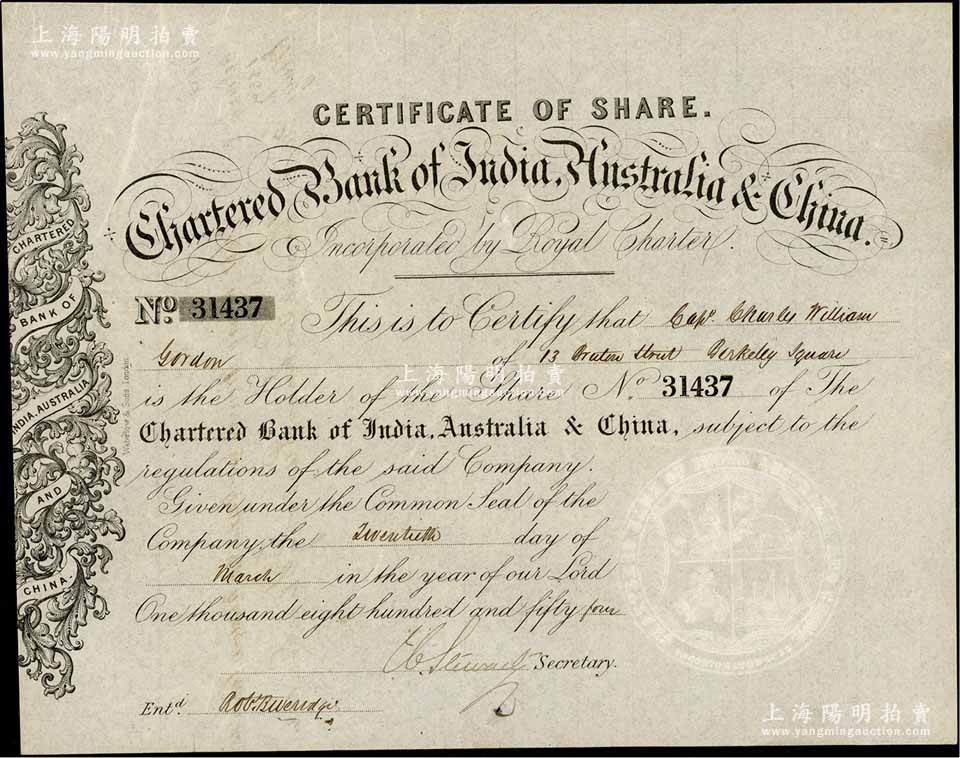 上海陽明拍賣
www.yangmingauction.com
CERTIFICATE OF SHARE.
Chartered Bank of India, Australia & China.
Incorporated by Royal Charter.
No. 31437 This is to Certify that Capt. Charles William
Gordon of 13 Bruton Street Berkeley Square
is the Holder of the Share No. 31437 of The
Chartered Bank of India, Australia & China, subject to the
regulations of the said Company.
Given under the Common Seal of the
Company, the Twentieth day of
March in the year of our Lord
One thousand eight hundred and fifty four
Secretary.
Entd. Robt. Beveridge
CHARTERED
BANK OF
INDIA, AUSTRALIA
AND
CHINA.
上海陽明拍賣
www.yangmingauction.com
上海陽明拍賣
www.yangmingauction.com